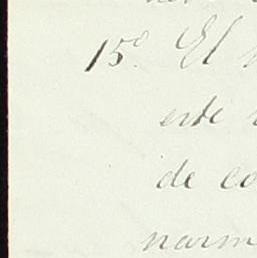 15º. El
este
de co
narm